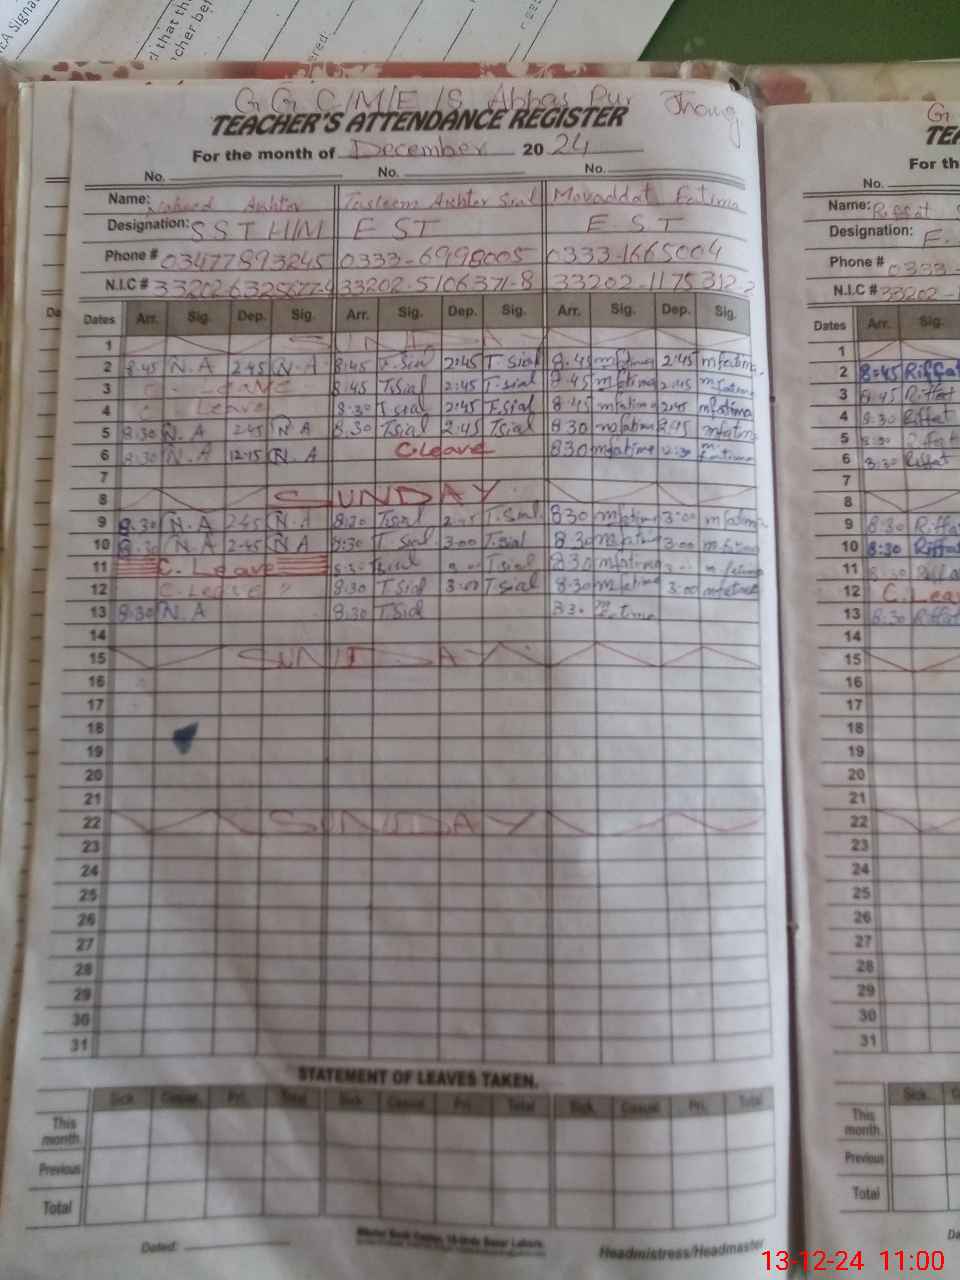 EA Signa
d that th
cher be
ered:
G G C/M/E/S Abbas Pur Jhang
TEACHER'S ATTENDANCE REGISTER
For the month of December 20 24
No. No. No.
Name: Naheed Akhter Tasleem Akhter Sial Mavaddat Fatima
Designation: SST H/M EST EST
Phone # 03477893245 0333-6998005 0333-1665004
N.I.C # 33202 33202-5106371-8 33202-1175312-2
Dates Arr. Sig. Dep. Sig. Arr. Sig. Dep. Sig. Arr. Sig. Dep. Sig.
1 SUNDAY
2 8:45 N.A 2:45 N.A 8:45 T.Sial 2:45 T.Sial 8:45 mfatima 2:45 mfatima
3 C. Leave 8:45 T.Sial 2:45 T.Sial 8:45 mfatima 2:45 mfatima
4 C. Leave 8:30 T.Sial 2:45 T.Sial 8:45 mfatima 2:45 mfatima
5 8:30 N.A 2:45 N.A 8:30 T.Sial 2:45 T.Sial 8:30 mfatima 2:45 mfatima
6 8:30 N.A 12:15 N.A C.leave 8:30 mfatima 12:30 m.fatima
7
8 SUNDAY
9 8:30 N.A 2:45 N.A 8:30 T.Sial 2:45 T.Sial 8:30 mfatima 3:00 mfatima
10 8:30 N.A 2:45 N.A 8:30 T.Sial 3:00 T.Sial 8:30 mfatima 3:00 mfatima
11 C. Leave 8:30 T.Sial 3:00 T.Sial 8:30 mfatima 3:00 mfatima
12 C. Leave " 8:30 T.Sial 3:00 T.Sial 8:30 mfatima 3:00 mfatima
13 8:30 N.A 8:30 T.Sial 8:30 m.fatima
14
15 SUNDAY
16
17
18
19
20
21
22 SUNDAY
23
24
25
26
27
28
29
30
31
STATEMENT OF LEAVES TAKEN.
Sick Casual Pri. Total Sick Casual Pri. Total Sick Casual Pri. Total
This month.
Previous
Total
Dated:
Headmistress/Headmaster
G
TEA
For th
No.
Name: Riffat
Designation: E.
Phone # 0333-
N.I.C # 33202-
Dates Arr. Sig.
1
2 8:45 Riffat
3 8:45 Riffat
4 8:30 Riffat
5 8:30 Riffat
6 8:30 Riffat
7
8
9 8:30 Riffat
10 8:30 Riffat
11 8:30 Riffat
12 C. Leav
13 8:30 Riffat
14
15
16
17
18
19
20
21
22
23
24
25
26
27
28
29
30
31
Sick
This month.
Previous
Total
13-12-24 11:00